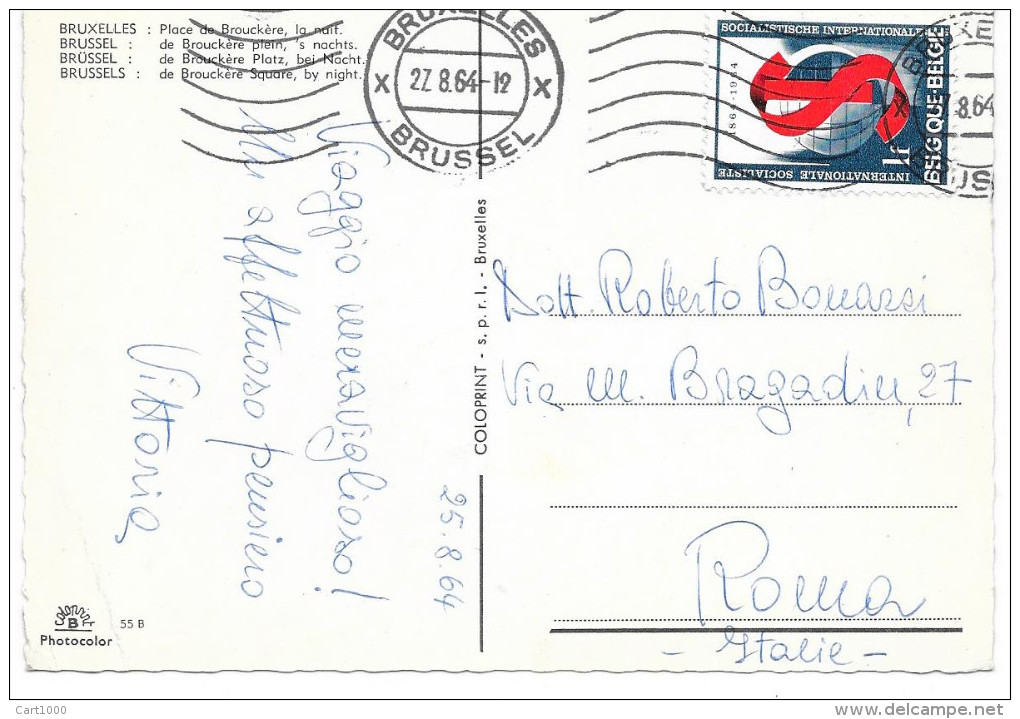 BRUXELLES : Place de Brouckère, la nuit.
BRUSSEL : de Brouckère plein, 's nachts.
BRÜSSEL : de Brouckère Platz, bei Nacht.
BRUSSELS : de Brouckère Square, by night.
BRUXELLES
X 27.8.64-12 X
BRUSSEL
SOCIALISTISCHE INTERNATIONALE
1864-1964
INTERNATIONALE SOCIALISTE
BELGIQUE-BELGIE
1F
25.8.64
Viaggio meraviglioso!
Un affettuoso pensiero
Vittoria
COLOPRINT - s.p.r.l. - Bruxelles
Dott. Roberto Bonassi
Via M. Bragadin, 27
Roma
- Italie -
B
Photocolor
55 B
Cart1000
delcampe.net